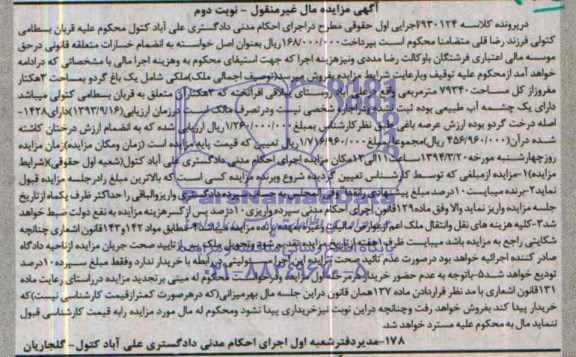 آگهی مزایده مال غیرمنقول - نوبت دوم
درپرونده کلاسه ۹۳۰۱۲۴/اجرایی اول حقوقی مطرح دراجرای احکام مدنی دادگستری علی آباد کتول محکوم علیه قربان بسطامی
کتولی فرزند رضا قلی متضامنا محکوم است بپرداخت ۱۶۸/۰۰۰/۰۰۰ریال بعنوان اصل خواسته به انضمام خسارات متعلقه قانونی درحق
موسسه مالی اعتباری فرشتگان باوکالت رضا مددی ونیزهزینه اجرا که جهت استیفای محکوم به وهزینه اجرا مالی با مشخصاتی که درادامه
خواهد آمد ازمحکوم علیه توقیف وبارعایت شرایط مزایده بفروش میرسد(توصیف اجمالی ملک)ملکی شامل یک باغ گردو بمساحت ۳هکتار
مفروزاز کل مساحت ۷۹۳۴۰ مترمربعی واقع در علی آباد روستای علاقی افراتخته که ۳هکتار آن متعلق به قربان بسطامی کتولی میباشد
دارای یک چشمه آب طبیعی بوده ثبت در اجاره شخصی نیست ودرتصرف مالک است درزمان ارزیابی(۱۳۹۳/۹/۱۶)دارای۱۴۲۸
اصله درخت گردو بوده ارزش عرصه باغی طبق نظر کارشناس بمبلغ ۱/۲۶۰/۰۰۰/۰۰۰ریال ارزیابی شده که به انضمام ارزش درختان کاشته
شده درآن(۴۵۶/۹۶۰/۰۰۰ریال)مجموعا بمبلغ ۱/۷۱۶/۹۶۰/۰۰۰ریال تعیین که قیمت پایه مزایده است (زمان ومکان مزایده)زمان مزایده
روزچهارشنبه مورخه ۱۳۹۴/۳/۲۰ساعت ۱۱الی۱۲مکان مزایده اجرای احکام مدنی دادگستری علی آباد کتول(شعبه اول حقوقی)(شرایط
مزایده)۱-مزایده ازمبلغی که توسط کارشناس تعیین گردیده شروع وبرنده مزایده کسی است که بالاترین مبلغ رادرجلسه مزایده قبول
نماید ۲-برنده میبایست ۱۰درصد مبلغ پیشنهادی رانقدا وفی المجلس به حساب سپرده دادگستری واریزوالباقی را حداکثر ظرف یکماه ازتاریخ
جلسه مزایده واریز نماید والا وفق ماده۱۲۹قانون اجرای احکام مدنی سپرده واریزی ۱۰درصد پس از کسرهزینه مزایده به نفع دولت ضبط خواهد
شد۳-کلیه هزینه های نقل وانتقال ملک اعم ازعوارض مالیات وغیره بعهده برنده مزایده میباشد۴-مطابق مواد ۱۴۲و۱۴۳قانون اشعاری چنانچه
شکایتی راجع به مزایده باشد میبایست ظرف ۱هفته ازتاریخ مزایده تقدیم شود وتحویل ملک پس ازتایید صحت جریان مزایده ازناحیه دادگاه
صادر کننده اجرائیه خواهد بود درصورت عدم تائید صحت مزایده این اجرا مسئولیتی دررابطه با خریدار ندارد وفقط مبلغ سپرده ۱۰درصد
تودیع خواهد شد۵-باتوجه به عدم حضور خریدار درمرحله اول مزایده ودرخواست محکوم له مبنی برتجدید مزایده درراستای رعایت ماده
۱۳۱قانون اشعاری با مد نظر قراردادن ماده ۱۳۷همان قانون دراین جلسه مال بهرمیزانی(که درهرصورت کمترازقیمت کارشناسی نیست)که
خریدار پیدا کند بفروش خواهد رفت وچنانچه دراین نوبت نیزخریداری پیدا نشود ومحکوم له مال مورد مزایده رابه قیمت کارشناسی قبول
ننماید مال به محکوم علیه مسترد خواهد شد.
۱۷۸-مدیردفترشعبه اول اجرای احکام مدنی دادگستری علی آباد کتول - گلجاریان
ParsNamadData
۰۲۱-۸۸۳۴۹۶۷۰-۵